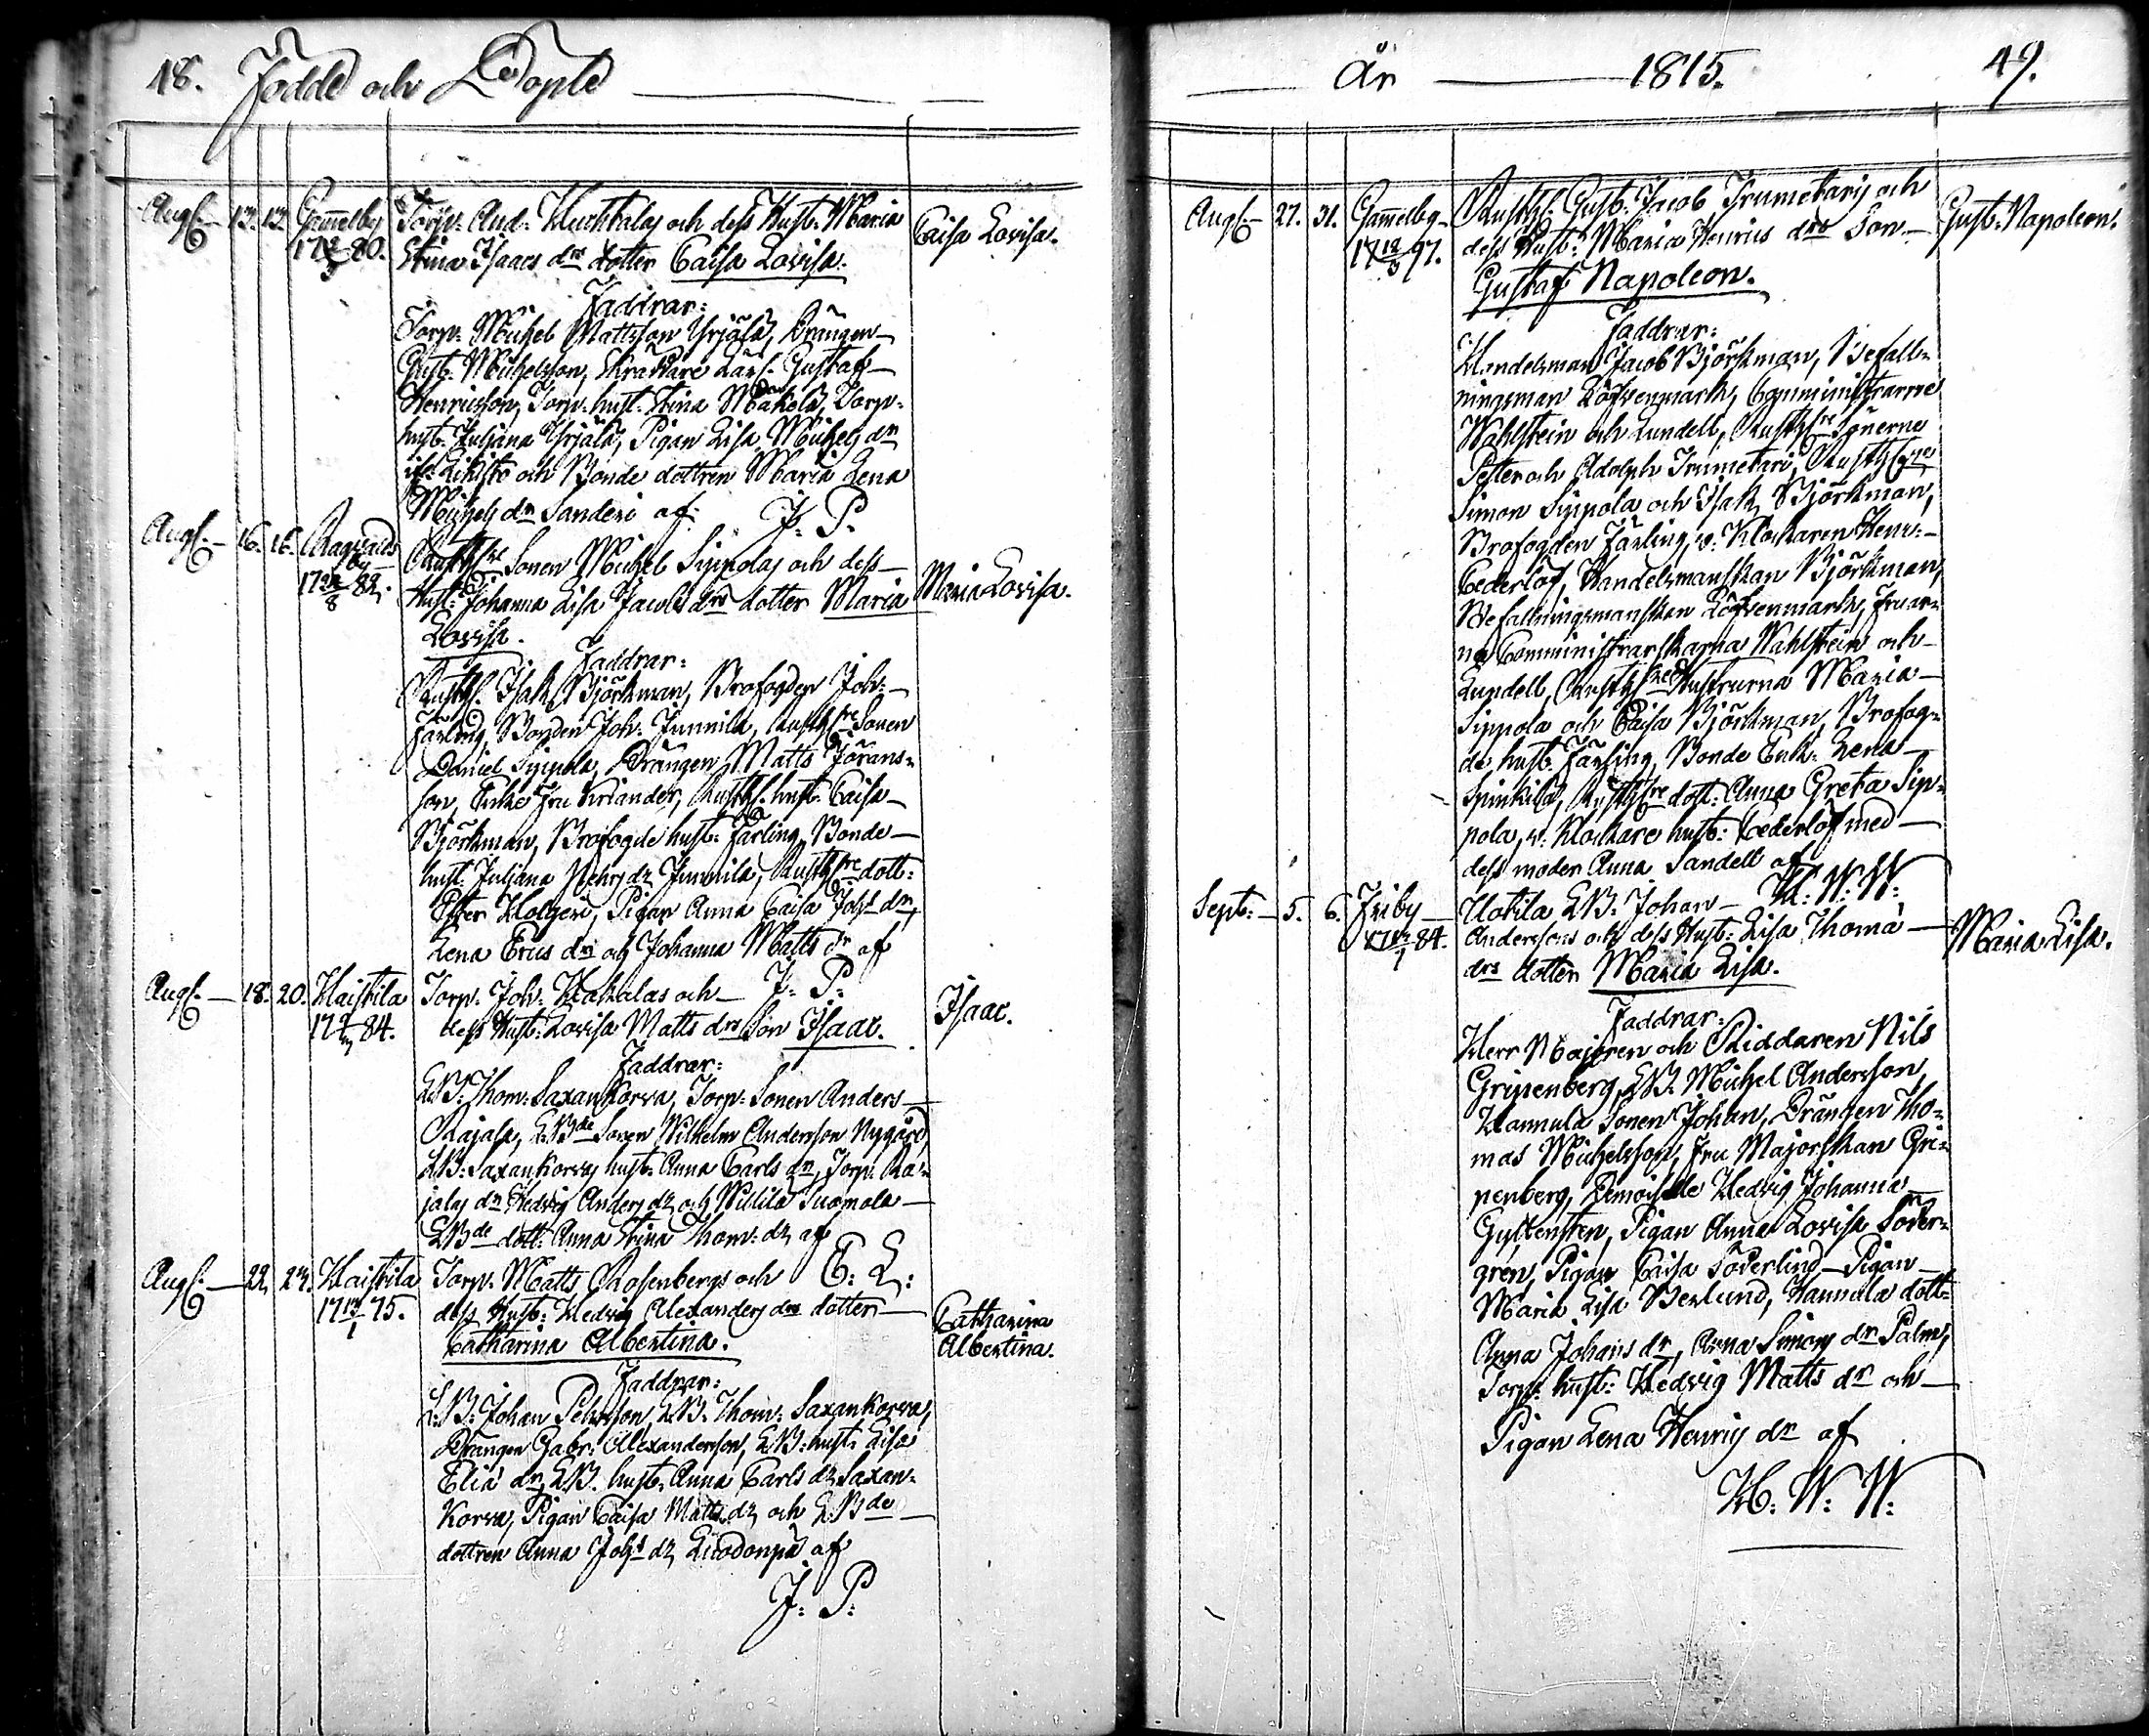 48. Födde och Döpte
Aug. 13. 13. Gammelby Torp. And. Huhtalas och dess Hust. Maria Caisa Lovisa.
17 80. Stina Isaacs drs dotter Caisa Lovisa.
Faddrar:
Torp. Michel Mattsson Yrjälä, Drängen
Gust. Michelsson, Skräddare Lärl. Gustaf
Henricsson, Torp. hust. Stina Mäkelä, Torp.
hust. Juliana Yrjälä, Pigan Lisa Michels dr
och Bonde dottren Maria Lena
Michels dr Sanderi af J. P.
Aug. 16. 16. Ragvalds
by Rusthre Sonen Michel Sippolas och dess
17 /8 82. Hust. Johanna Lisa Jacobs drs dotter Maria Maria Lovisa.
Lovisa.
Faddrar:
Rusth. Isak Björkman, Brofogden Joh.
Färling, Bonden Joh. Junnila, Rusthre Sonen
Daniel Sippola, Drängen Matts Jörans-
son, Enke Fru Kriander, Rusth. hust. Caisa
Björkman, Brofogde hust. Färling, Bonde
hust. Juliana Pehrs dr Junnila, Rusthre dott.
Pigan Anna Caisa Johs dr,
Lena Erics dr och Johanna Matts dr af
J. P.
Aug. 18. 20. Haistila Torp. Joh. Hakalas och
17 84. dess Hust. Lovisa Matts drs Son Isaac. Isaac.
Faddrar:
L.B. Thom. Saxankorva, Torp. Sonen Anders
Rajala, L.Bde Sonen Wilhelm Andersson Nygård,
L.B. Saxankorva hust. Anna Carls dr, Torp. Ra-
jalas dr Hedvig Anders dr och Suomola
L.Bde dott. Anna Stina Thom. dr af
E. L.
Aug. 22. 24. Haistila Torp. Matts Rosenbergs och
17 /1 75. dess Hust. Hedvig Alexanders drs dotter Catharina
Catharina Albertina. Albertina.
Faddrar:
L.B. Johan Pehrsson, L.B. Thom. Saxankorva,
Drängen Gabr. Alexandersson, L.B. hust. Lisa
Eliæ dr, L.B. hust. Anna Carls dr Saxan-
korva, Pigan Caisa Matts dr och L.Bde
dottren Anna Johs dr af
J. P.
År 1815. 49.
Aug. 27. 31. Gammelby Rusth. Gust. Jacob Trumetaris och Gust. Napoleon.
17 97. dess Hust. Maria Henrics drs Son
Gustaf Napoleon.
Faddrar:
Handelsman Jacob Björkman, Befall-
ningsman Löfvenmark, Comministrarne
Wahlstein och Lundell, Rusthre Sönerne
Petter och Adolph Trumetari, Rusthrne
Simon Sippola och Isak Björkman,
Brofogden Färling, v. Klockaren Henr.
Cederlöf, Handelsmanskan Björkman,
Befallningsmanskan Löfvenmark, Fruar-
na Comministrarskorna Wahlstein och
Lundell, Rusthre Hustrurna Maria
Sippola och Caisa Björkman, Brofog-
de hust. Färling, Bonde Enk. Lena
Spinkilä, Rusthre dott. Anna Greta Sip-
pola, v. Klockare hust. Cederlöf med
dess moder Anna Sandell af
H. W. W.
Sept. 5. 6. Friby Uotila L.B. Johan
17 /1 84. Anderssons och dess Hust. Lisa Thomæ Maria Lisa.
drs dotter Maria Lisa.
Faddrar:
Herr Majoren och Riddaren Nils
Gripenberg, L.B. Michel Andersson,
Hannula Sonen Johan, Drängen Tho-
mas Michelsson, Fru Majorskan Gri-
penberg, Demoiselle Hedvig Johanna
Gyllensten, Pigan Anna Lovisa Söder-
gren, Pigan Caisa Söderlind Pigan
Maria Lisa Berlund, Hannula dott.
Anna Johans dr, Anna Simons dr Palmi,
Torp. hust. Hedvig Matts dr och
Pigan Lena Henrics dr af
H. W. W.